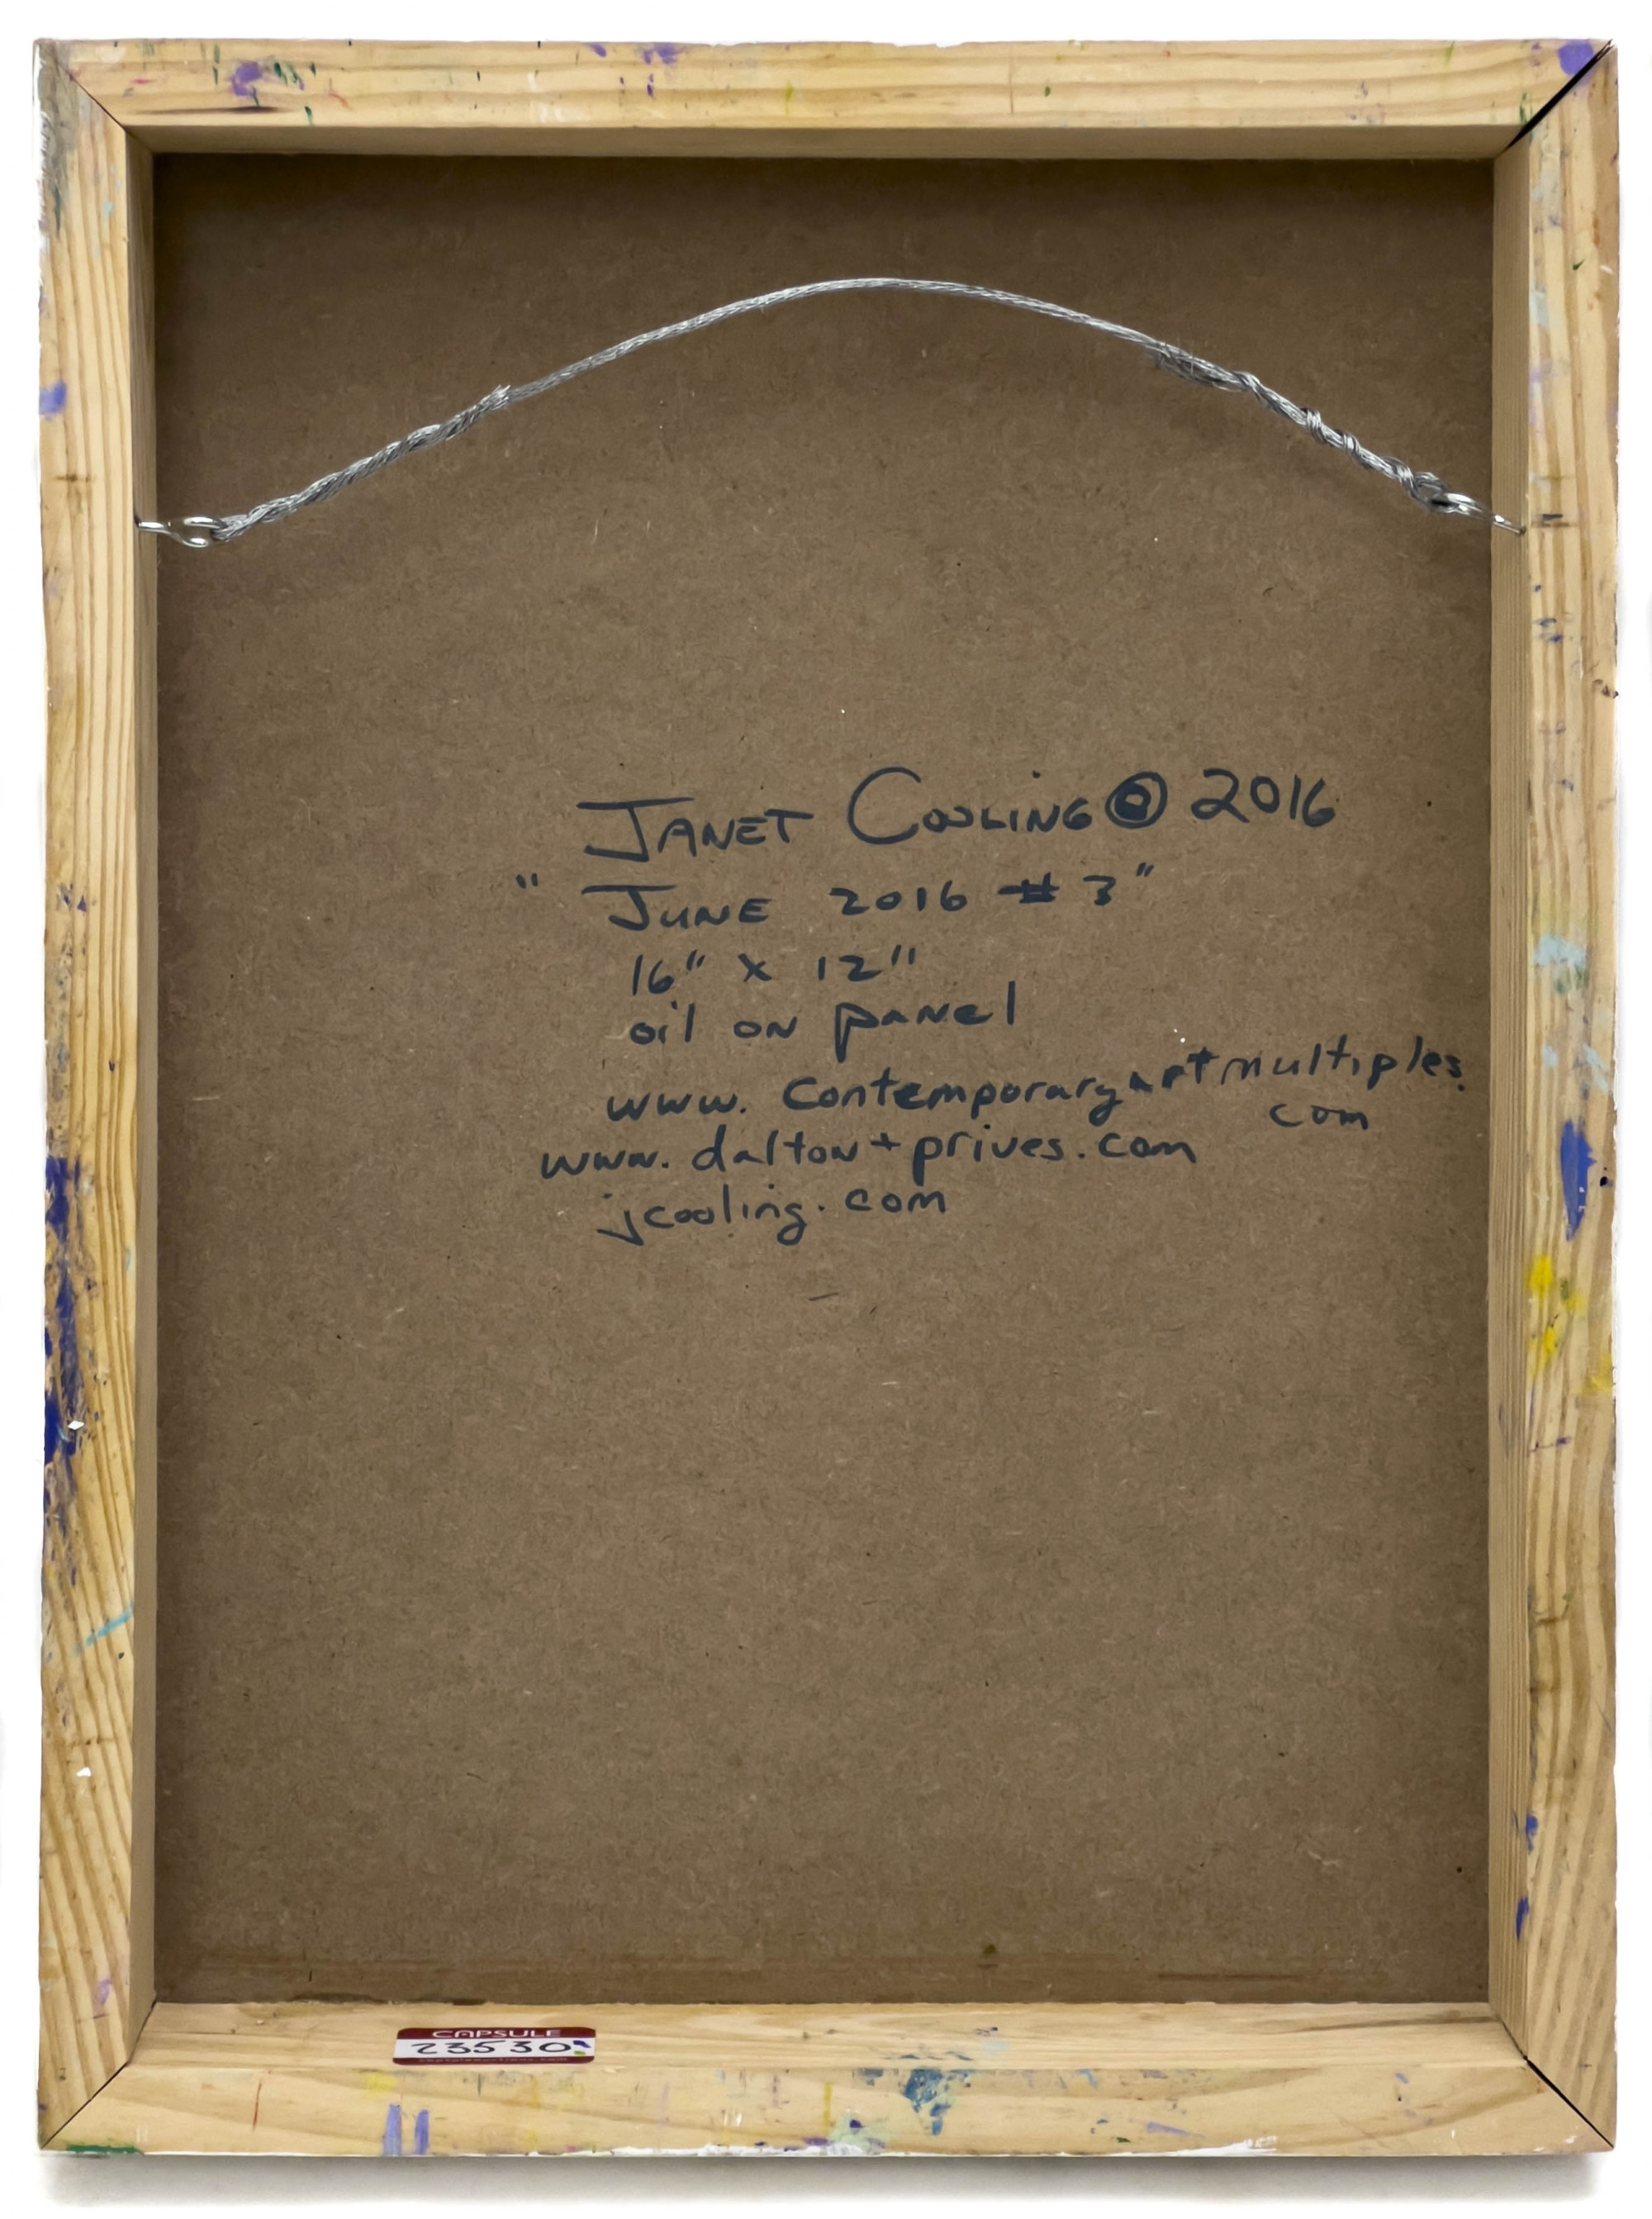 JANET COOLING © 2016
" JUNE 2016 # 3"
16" x 12"
oil on panel
www. contemporaryartmultiples.
com
www. dalton+prives. com
jcooling. com
CAPSULE
23530